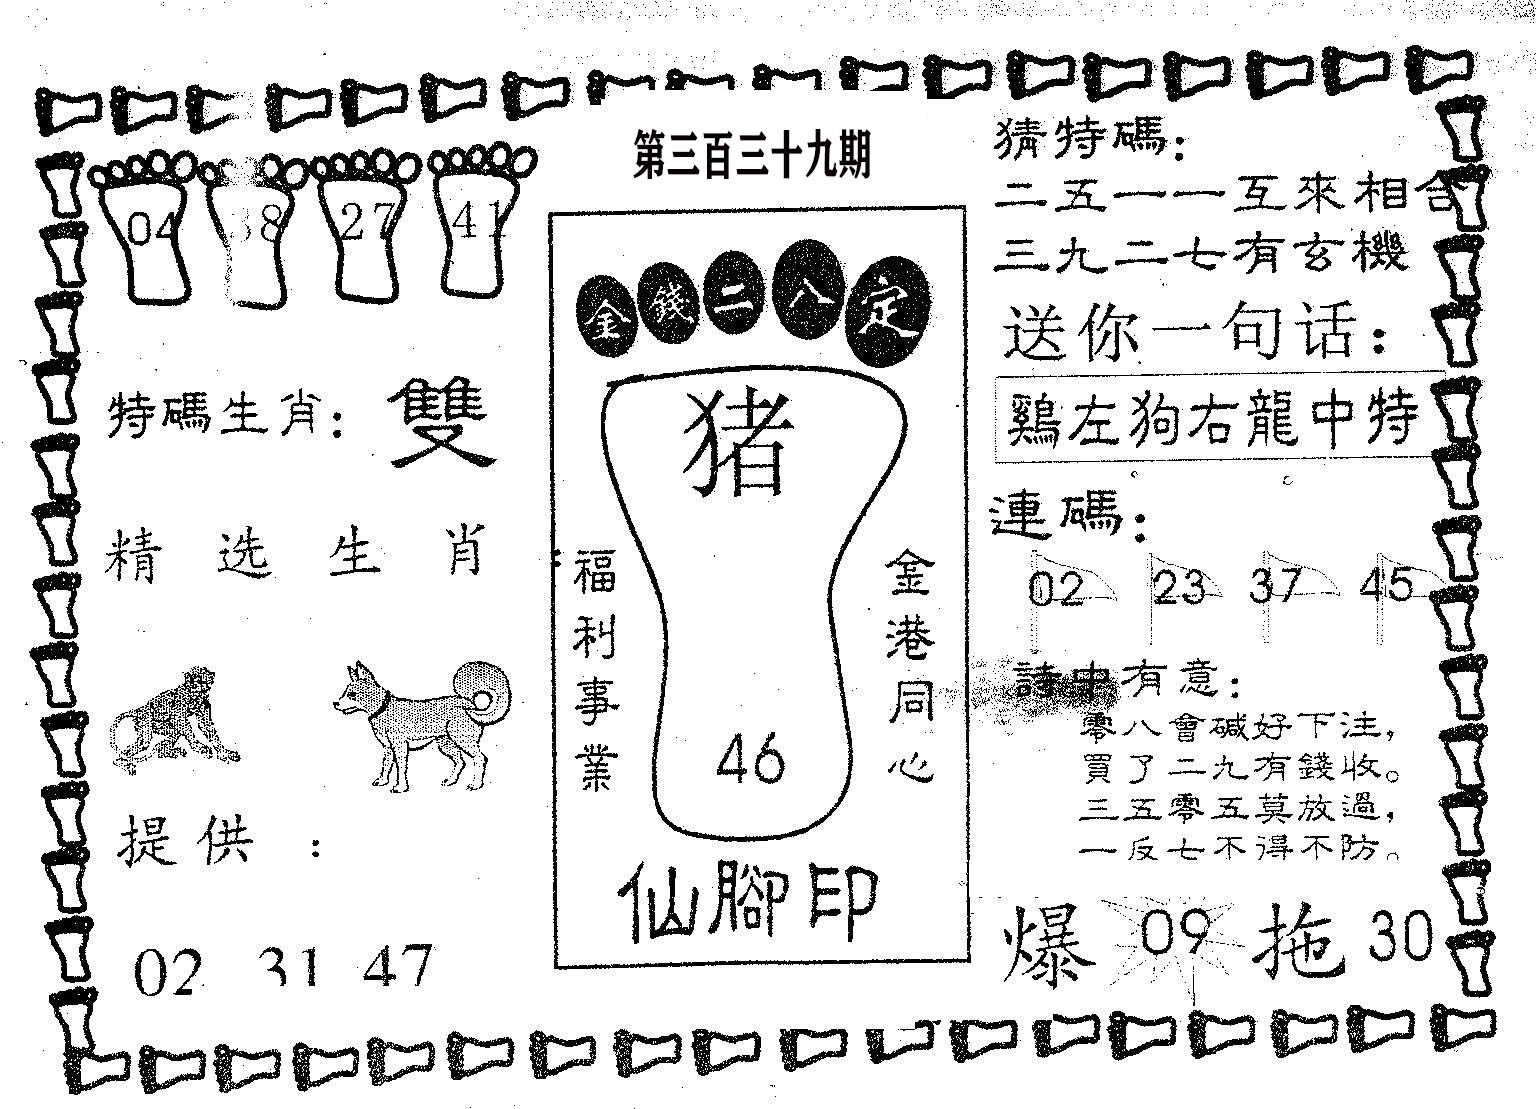 第三百三十九期
04 38 27 41
特碼生肖：雙
精选生肖：
提供：
02 31 47
金錢二八定
猪
福利事業
金港同心
46
仙腳印
猜特碼：
二五一一互來相合
三九二七有玄機
送你一句话：
鷄左狗右龍中特
連碼：
02 23 37 45
詩中有意：
零八會碱好下注，
買了二九有錢收。
三五零五莫放過，
一反七不得不防。
爆 09 拖 30